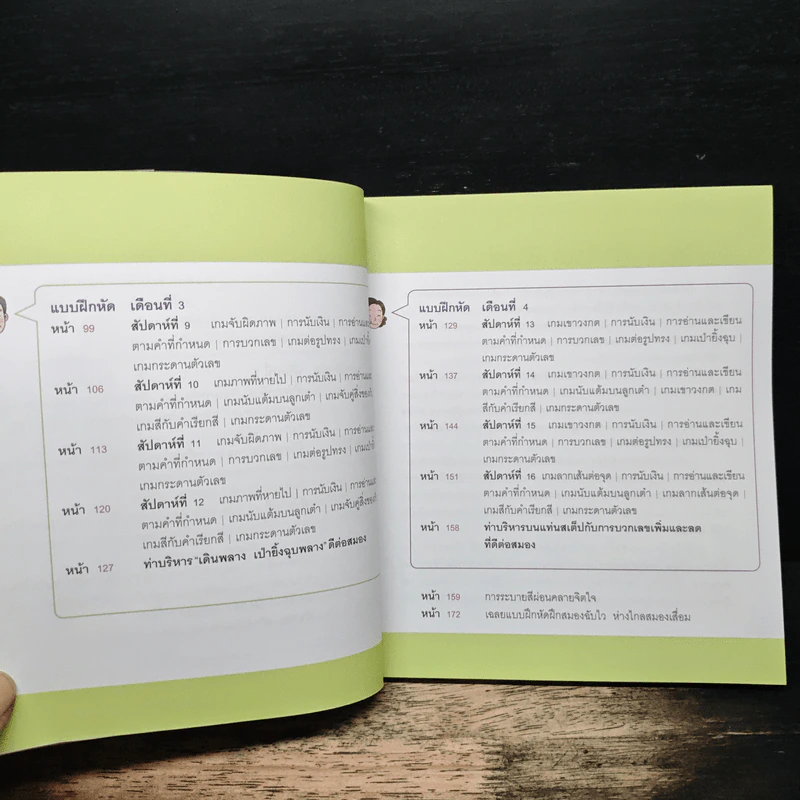 แบบฝึกหัด เดือนที่ 3
หน้า 99 สัปดาห์ที่ 9 เกมจับผิดภาพ | การนับเงิน | การอ่านและเขียน
ตามคำที่กำหนด | การบวกเลข | เกมต่อรูปทรง | เกมเป่ายิ้งฉุบ
เกมกระดานตัวเลข
หน้า 106 สัปดาห์ที่ 10 เกมภาพที่หายไป | การนับเงิน | การอ่านและเขียน
ตามคำที่กำหนด | เกมนับแต้มบนลูกเต๋า | เกมจับคู่สิ่งของ
เกมสีกับคำเรียกสี | เกมกระดานตัวเลข
หน้า 113 สัปดาห์ที่ 11 เกมจับผิดภาพ | การนับเงิน | การอ่านและเขียน
ตามคำที่กำหนด | การบวกเลข | เกมต่อรูปทรง | เกมเป่ายิ้งฉุบ
เกมกระดานตัวเลข
หน้า 120 สัปดาห์ที่ 12 เกมภาพที่หายไป | การนับเงิน | การอ่านและเขียน
ตามคำที่กำหนด | เกมนับแต้มบนลูกเต๋า | เกมจับคู่สิ่งของ
เกมสีกับคำเรียกสี | เกมกระดานตัวเลข
หน้า 127 ท่าบริหาร "เดินพลาง เป่ายิ้งฉุบพลาง" ดีต่อสมอง
แบบฝึกหัด เดือนที่ 4
หน้า 129 สัปดาห์ที่ 13 เกมเขาวงกต | การนับเงิน | การอ่านและเขียน
ตามคำที่กำหนด | การบวกเลข | เกมต่อรูปทรง | เกมเป่ายิ้งฉุบ |
เกมกระดานตัวเลข
หน้า 137 สัปดาห์ที่ 14 เกมเขาวงกต | การนับเงิน | การอ่านและเขียน
ตามคำที่กำหนด | เกมนับแต้มบนลูกเต๋า | เกมเขาวงกต | เกม
สีกับคำเรียกสี | เกมกระดานตัวเลข
หน้า 144 สัปดาห์ที่ 15 เกมเขาวงกต | การนับเงิน | การอ่านและเขียน
ตามคำที่กำหนด | การบวกเลข | เกมต่อรูปทรง | เกมเป่ายิ้งฉุบ |
เกมกระดานตัวเลข
หน้า 151 สัปดาห์ที่ 16 เกมลากเส้นต่อจุด | การนับเงิน | การอ่านและเขียน
ตามคำที่กำหนด | เกมนับแต้มบนลูกเต๋า | เกมลากเส้นต่อจุด |
เกมสีกับคำเรียกสี | เกมกระดานตัวเลข
หน้า 158 ท่าบริหารบนแท่นสเต็ปกับการบวกเลขเพิ่มและลด
ที่ดีต่อสมอง
หน้า 159 การระบายสีผ่อนคลายจิตใจ
หน้า 172 เฉลยแบบฝึกหัดฝึกสมองฉับไว ห่างไกลสมองเสื่อม